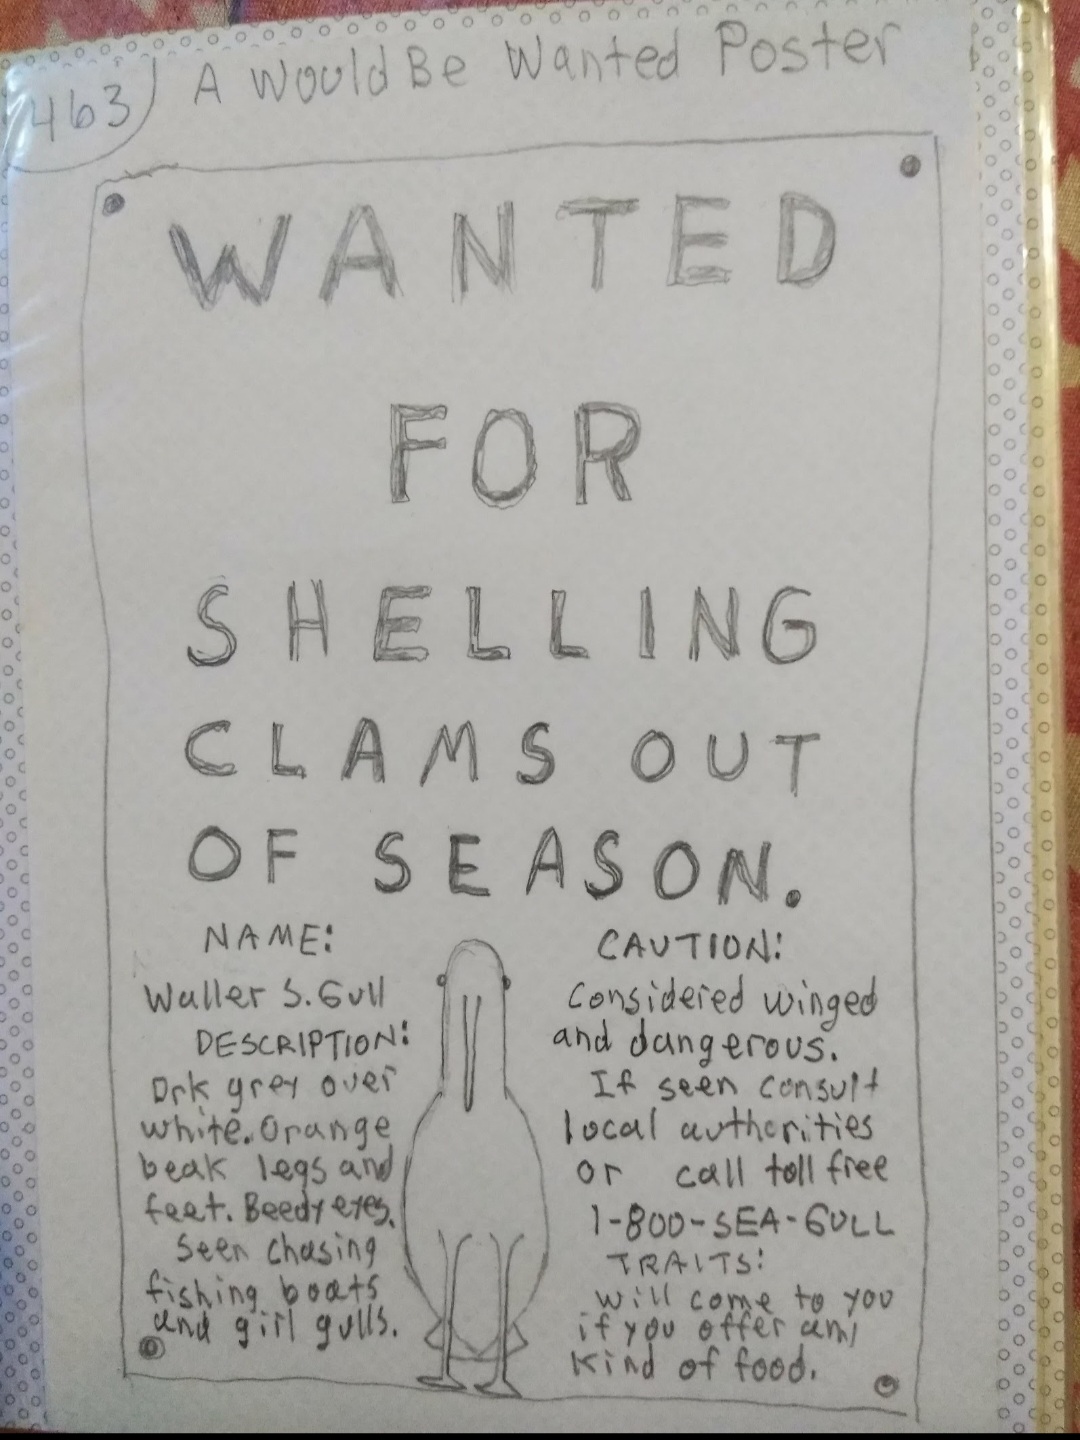 463
A Would Be Wanted Poster
WANTED
FOR
SHELLING
CLAMS OUT
OF SEASON.
NAME:
Waller S. Gull
DESCRIPTION:
Drk grey over
white. Orange
beak legs and
feet. Beedy eyes.
Seen chasing
fishing boats
and girl gulls.
CAUTION:
Considered winged
and dangerous.
If seen consult
local authorities
or call toll free
1-800-SEA-GULL
TRAITS:
will come to you
if you offer any
kind of food.